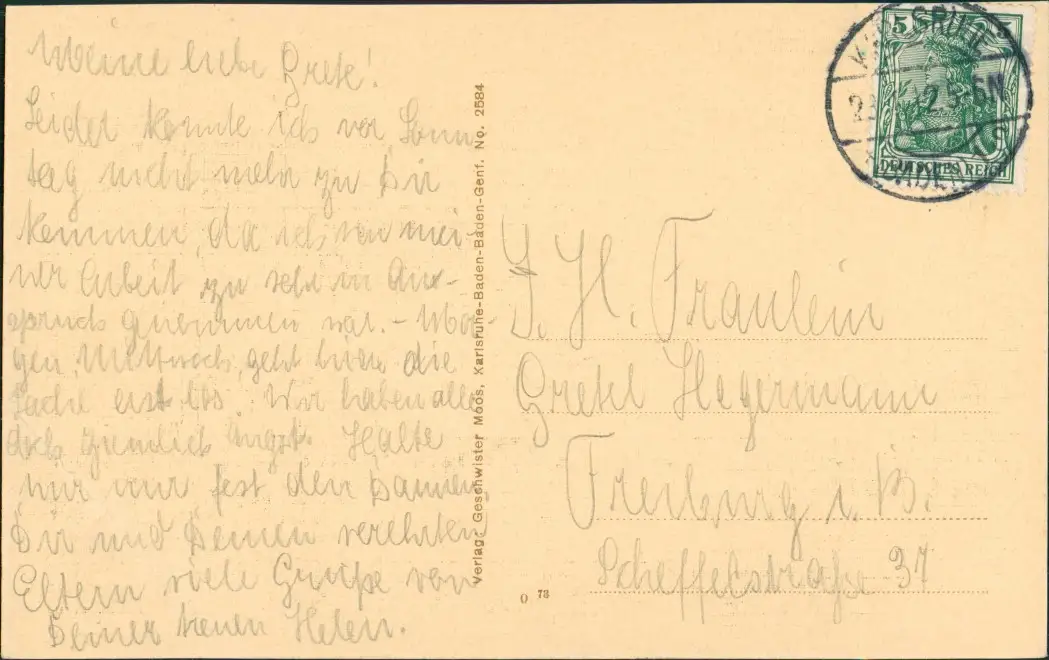 Meine liebe Grete!
Leider konnte ich vor Sonn
tag nicht mehr zu Dir
kommen, da ich von mei-
ner Arbeit zu sehr in An-
spruch genommen war. - Mor-
gen, Mittwoch, geht hier die
Sache erst los. Wir haben alle
doch ziemlich Angst. Halte
mir nur fest den Daumen.
Dir und Deinen verehrten
Eltern viele Grüße von
Deiner treuen Helen.
Verlag: Geschwister Moos, Karlsruhe-Baden-Baden-Genf. No. 2584
0 73
5 5
DEUTSCHES REICH
KARLSRUHE
BADEN
I. H. Fräulein
Gretel Hegermann
Freiburg i. B.
Scheffelstraße 37